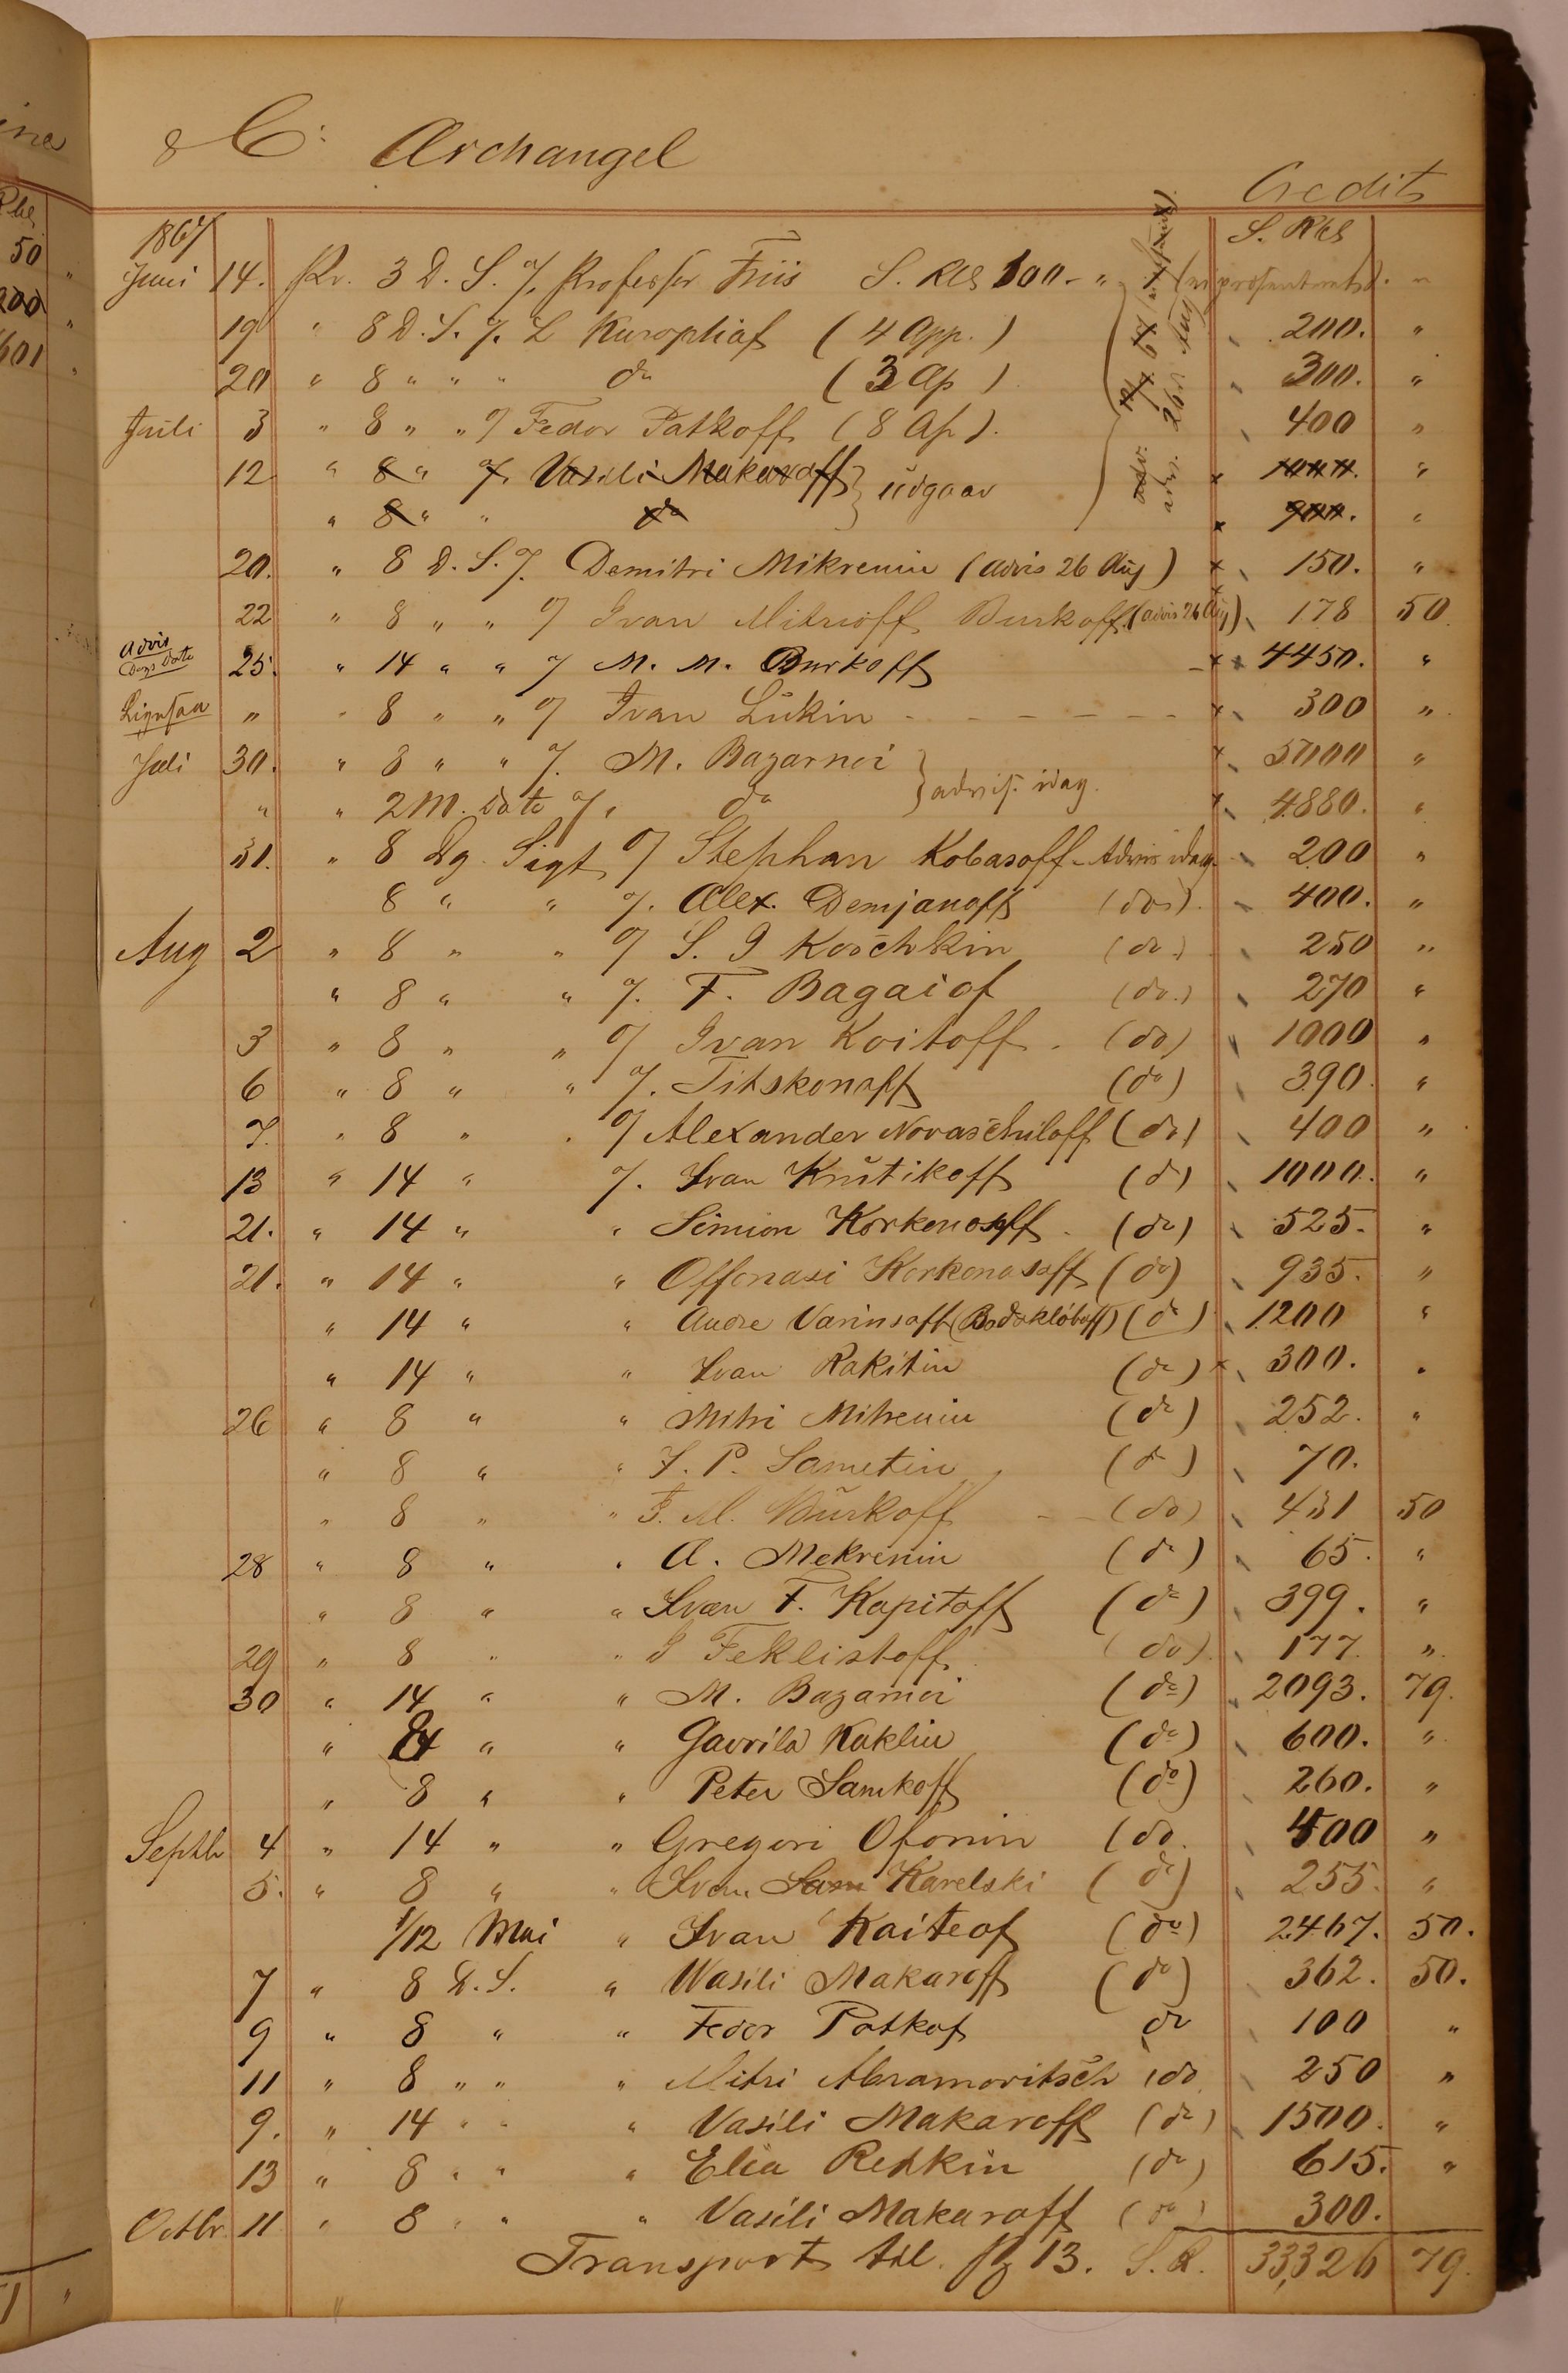 & Co: Archangel
Credit
1867
S. Rbl
Juni 14. Pr. 3 D. S. % Professor Friis S. Rbl 100 - " (ei præsenteret). "
19 " 8 D. S. %. L Kuroptiaf (4 App.) 200. "
20 " 8 " " " do (3 Ap) 300. "
Juli 3 " 8 " " % Fedor Patkoff (8 Ap). 400 "
12 " 8 " % Vasili Makaroff } udgaar 1000. "
" 8 " " do 900. "
adv. 26de Aug
20. " 8 D. S. %. Demitri Mikrenin (advis 26 Aug) 150. "
22 " 8 " " % Ivan Mitrioff Burkoff (advis 26 Aug) 178 50
advis
Dags Dato
25. " 14 " " % M. M. Burkoff 4450. "
Ligesaa " " 8 " " % Ivan Lukin - - - - - - 300 "
Juli 30. " 8 " " %. M. Bazarnoi 5000 "
" " 2 M. Dato %. do } advis. idag. 4880. "
31. " 8 Dg. Sigt % Stephan Kobasoff - Advis idag. 200 "
8 " " %. Alex. Demjanoff (do). 400. "
Aug 2 " 8 " " % S. I Koschkin (do.) 250 "
" 8 " " %. F. Bagaiof (do.) 270 "
3 " 8 " " % Ivan Koitoff. (do) 1000 "
6 " 8 " " %. Titskonoff (do) 390. "
7. " 8 " " % Alexander Novaschiloff (do) 400 "
13 " 14 " %. Ivan Krutikoff (do) 1000. "
21. " 14 " " Simion Korkonosoff. (do) 525. "
21. " 14 " " Offonasi Korkonosoff (do) 935. "
" 14 " " Andre Varinsoff (Bodoklöboff) (do) 1200 "
" 14 " " Ivan Rakitin (do) 300. "
26 " 8 " " Mitri Mitrenin (do) 252. "
" 8 " " J. P. Sametin (do) 70.
" 8 " " F. M. Burkoff - - (do) 431 50
28 " 8 " " A. Mekrenin (do) 65. "
" 8 " " Ivan F. Kapitoff (do) 399. "
29 " 8 " " I Feklistoff (do). 177. "
30 " 14 " " M. Bazarnoi (do) 2093. 79.
" 8 " " Gavrila Kuklin (do) 600. "
" 8 " " Peter Samkoff (do) 260. "
Septbr 4 " 14 " " Gregori Ofonin (do. 400 "
5. " 8 " " Ivan Sam Karelski (do) 255. "
1/12 Mai " Ivan Kaiteof (do) 2467. 50.
7 " 8 D. S. " Wasili Makaroff (do) 362. 50.
9 " 8 " " Fedor Patkof do 100 "
11 " 8 " " " Mitri Abramovitsch (do 250 "
9. " 14 " " " Vasili Makaroff (do) 1500. "
13 " 8 " " " Elia Retkin (do) 615. "
Octbr. 11 " 8 " " " Vasili Makaroff (do) 300.
Transport til pg 13. S. R. 33,326 79.